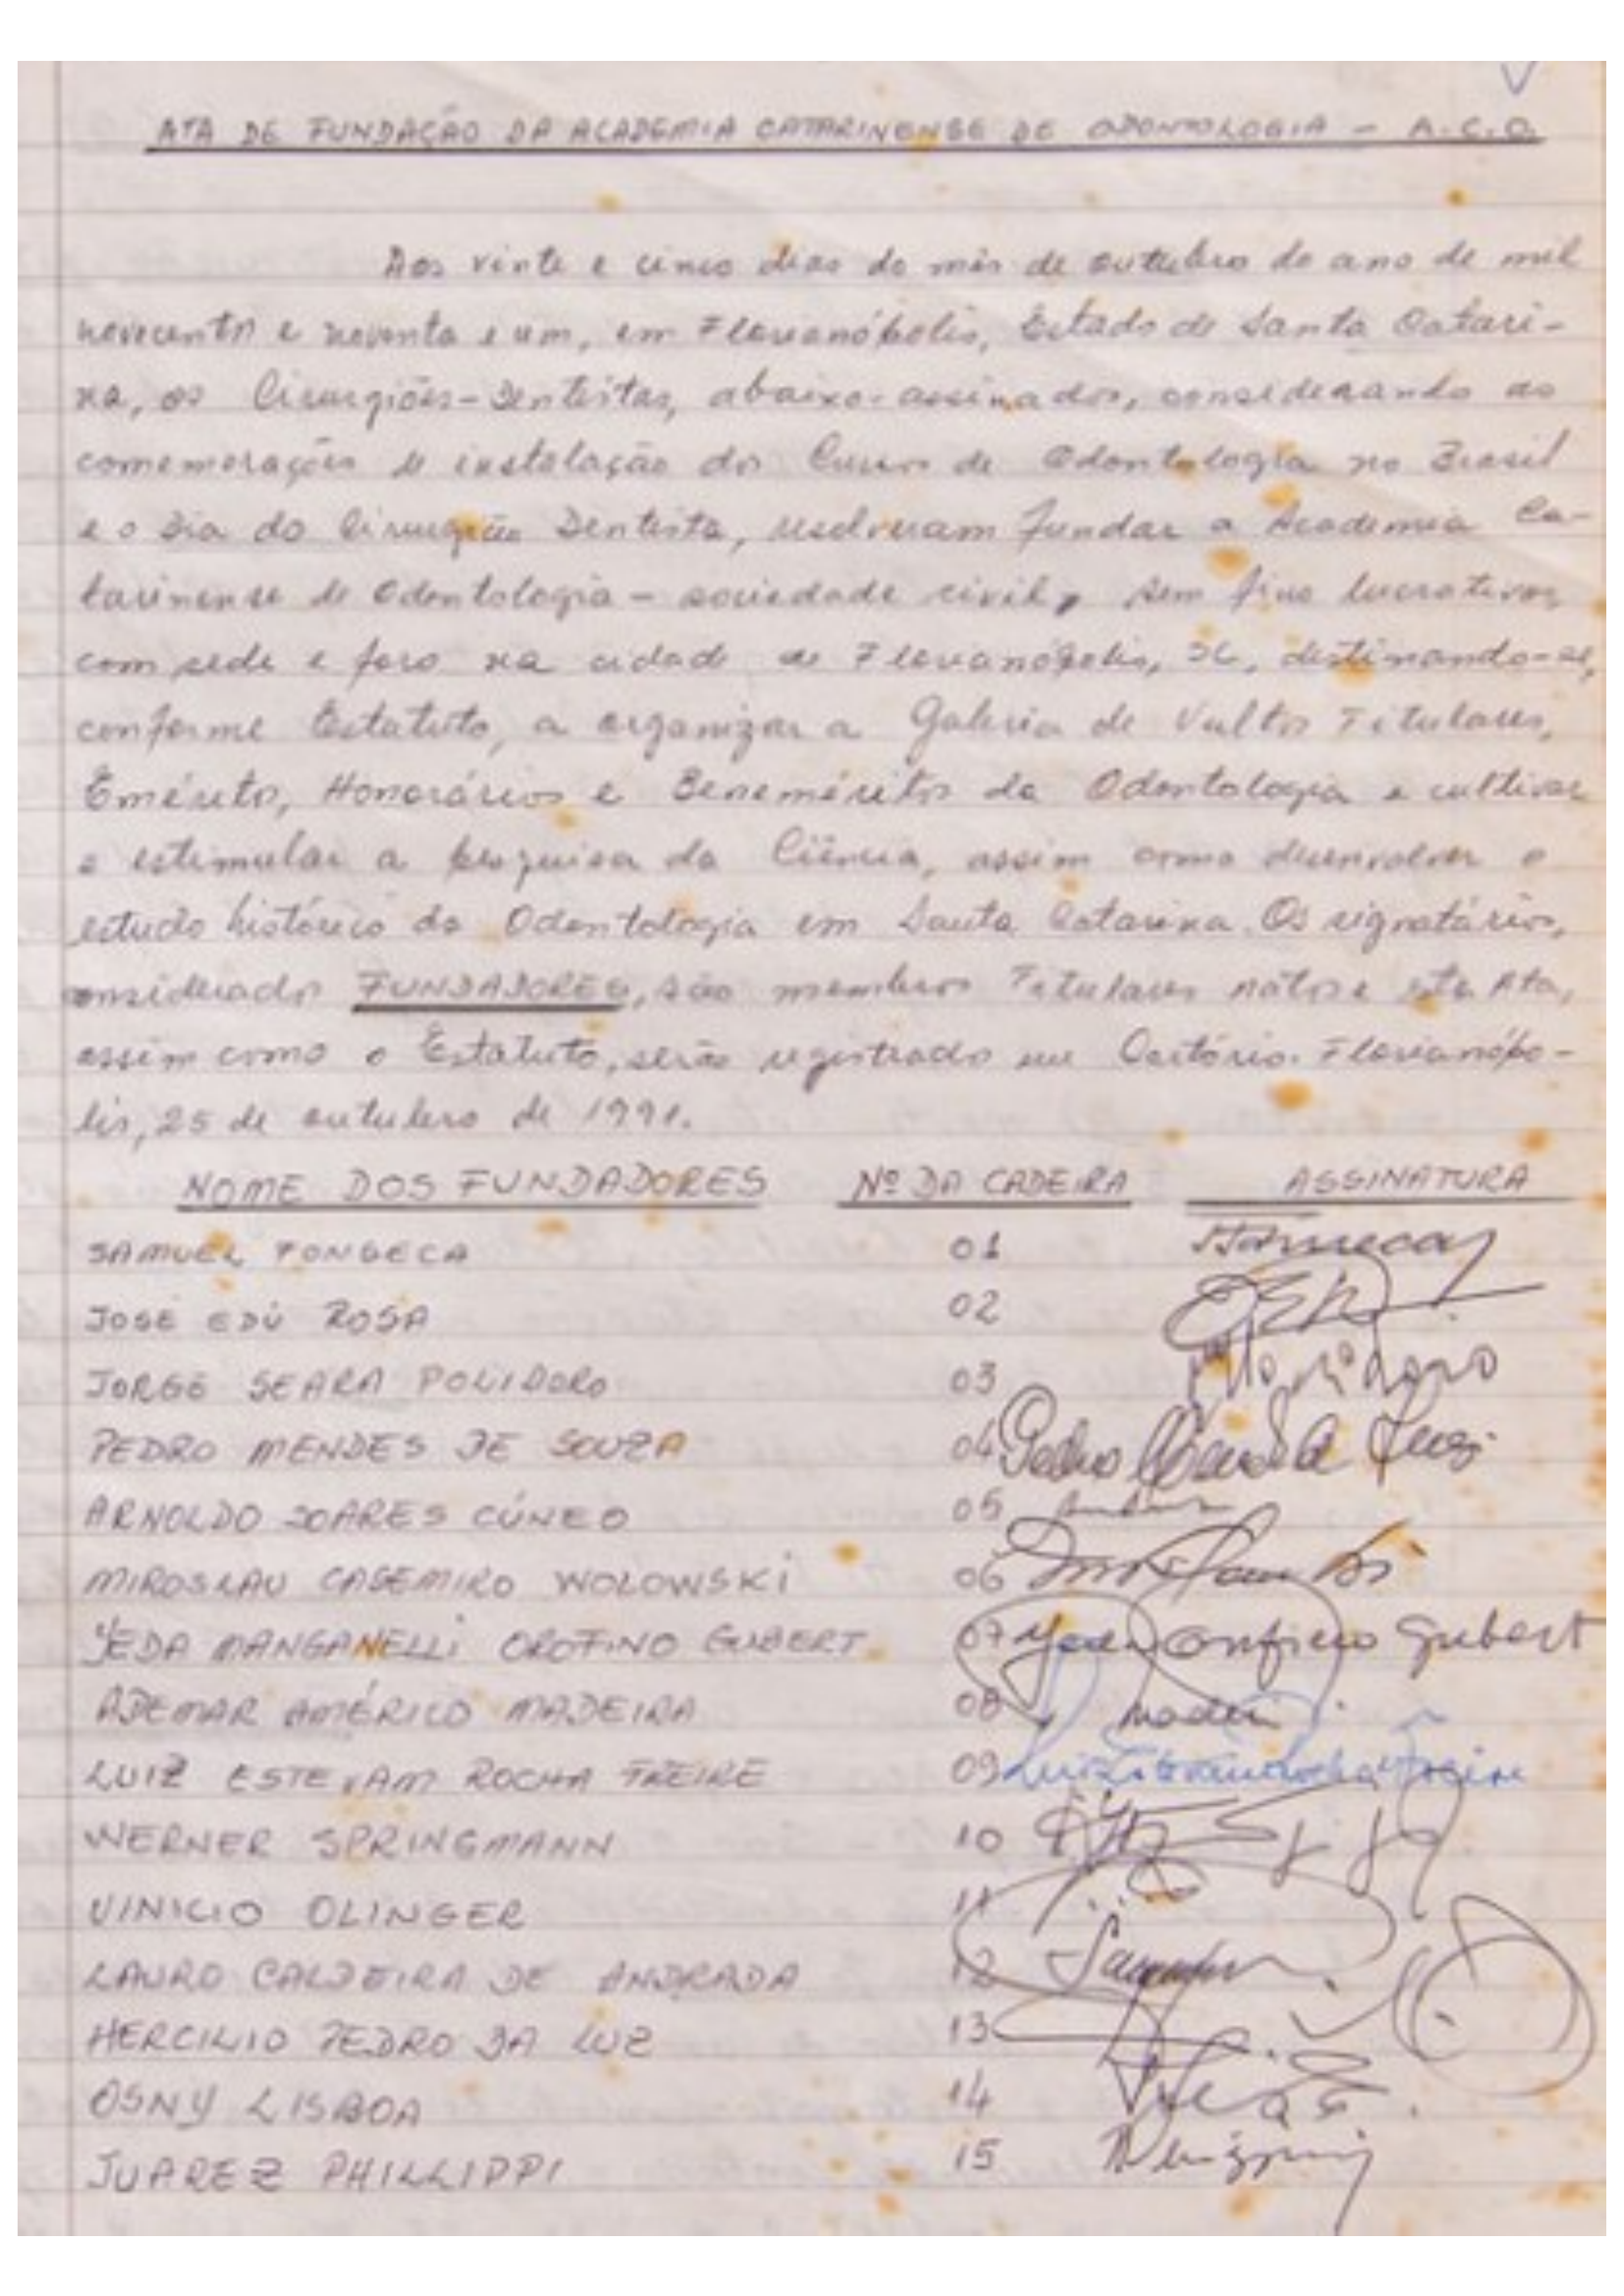 ATA DE FUNDAÇÃO DA ACADEMIA CATARINENSE DE ODONTOLOGIA - A.C.O.
Aos vinte e cinco dias do mês de outubro do ano de mil
novecentos e noventa e um, em Florianópolis, Estado de Santa Catari-
na, os Cirurgiões-Dentistas, abaixo-assinados, considerando as
comemorações de instalação dos Cursos de Odontologia no Brasil
e o Dia do Cirurgião Dentista, resolveram fundar a Academia Ca-
tarinense de Odontologia - sociedade civil, sem fins lucrativos,
com sede e foro na cidade de Florianópolis, SC, destinando-se,
conforme Estatuto, a organizar a Galeria de Vultos Titulares,
Eméritos, Honorários e Beneméritos da Odontologia e cultivar
e estimular a pesquisa da Ciência, assim como desenvolver o
estudo histórico da Odontologia em Santa Catarina. Os signatários,
considerados FUNDADORES, são membros Titulares natos e esta Ata,
assim como o Estatuto, serão registrados em Cartório. Florianópo-
lis, 25 de outubro de 1991.
NOME DOS FUNDADORES Nº DA CADEIRA ASSINATURA
SAMUEL FONSECA 01
JOSÉ EDÚ ROSA 02
JORGE SEARA POLIDORO 03
PEDRO MENDES DE SOUZA 04 Pedro
ARNOLDO SOARES CÚNEO 05
MIROSLAU CASEMIRO WOLOWSKI 06
YEDA MANGANELLI OROFINO GUBERT 07 Yeda Orofino Gubert
ADEMAR AMÉRICO MADEIRA 08
LUIZ ESTEVAM ROCHA FREIRE 09 Luiz Estevam Rocha Freire
WERNER SPRINGMANN 10
VINICIO OLINGER 11
LAURO CALDEIRA DE ANDRADA 12
HERCILIO PEDRO DA LUZ 13
OSNY LISBOA 14
JUAREZ PHILLIPPI 15